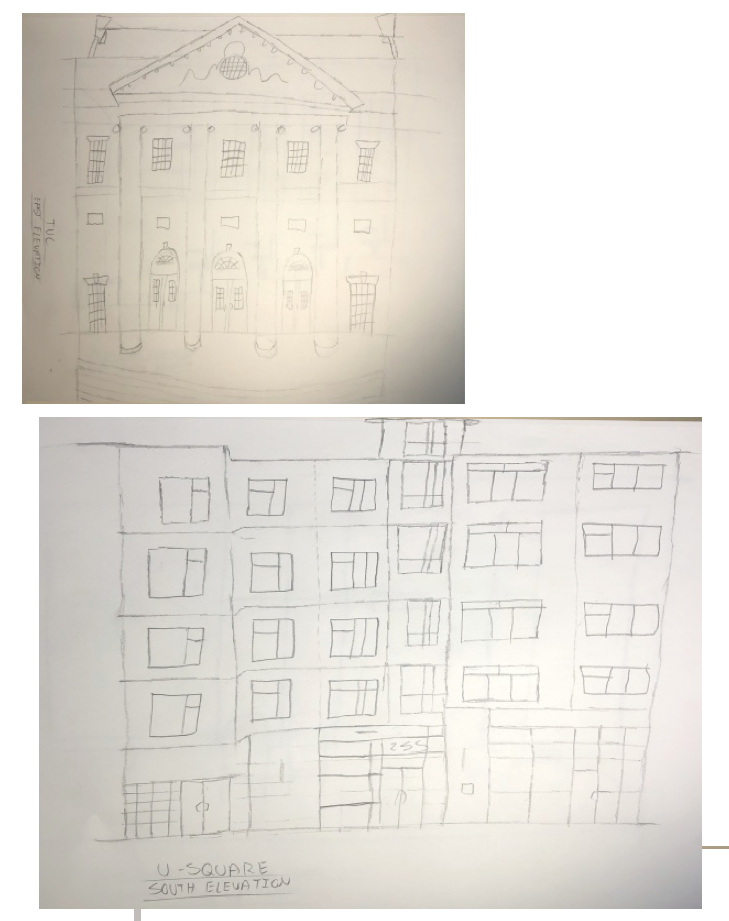 TUC
EAST ELEVATION
255
U-SQUARE
SOUTH ELEVATION